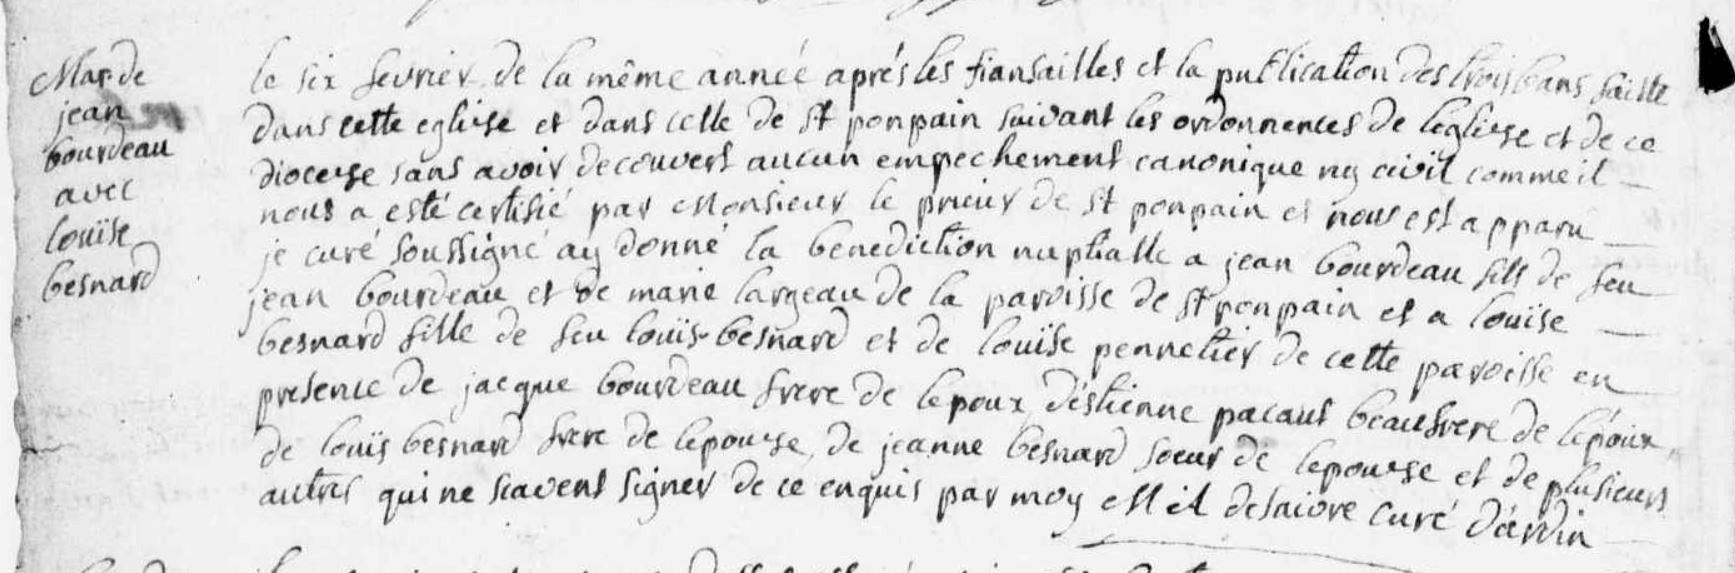 Mar. de
jean
bourdeau
avec
louïse
besnard
le six fevrier de la même annéé aprés les fiansailles et la publication des trois bans faitte
dans cette egliese et dans celle de st ponpain suivant les ordonnences de legliese et de ce
diocese sans avoir decouvert aucun empechement canonique ny civil comme il
nous a esté certifié par Monsieur le prieur de st ponpain et nous est apparu
je curé soussigné ay donné la benediction nuptialle a jean bourdeau fils de feu
jean bourdeau et de marie largeau de la paroisse de st ponpain et a louïse
besnard fille de feu louïs besnard et de louïse pennetier de cette paroisse en
presence de jacque bourdeau frere de lepoux, d'estienne pacaut beaufrere de lépoux,
de louïs besnard frere de lepouse, de jeanne besnard soeur de lepouse et de plusieurs
autres qui ne scavent signer de ce enquis par moy desaivre curé d'ardin